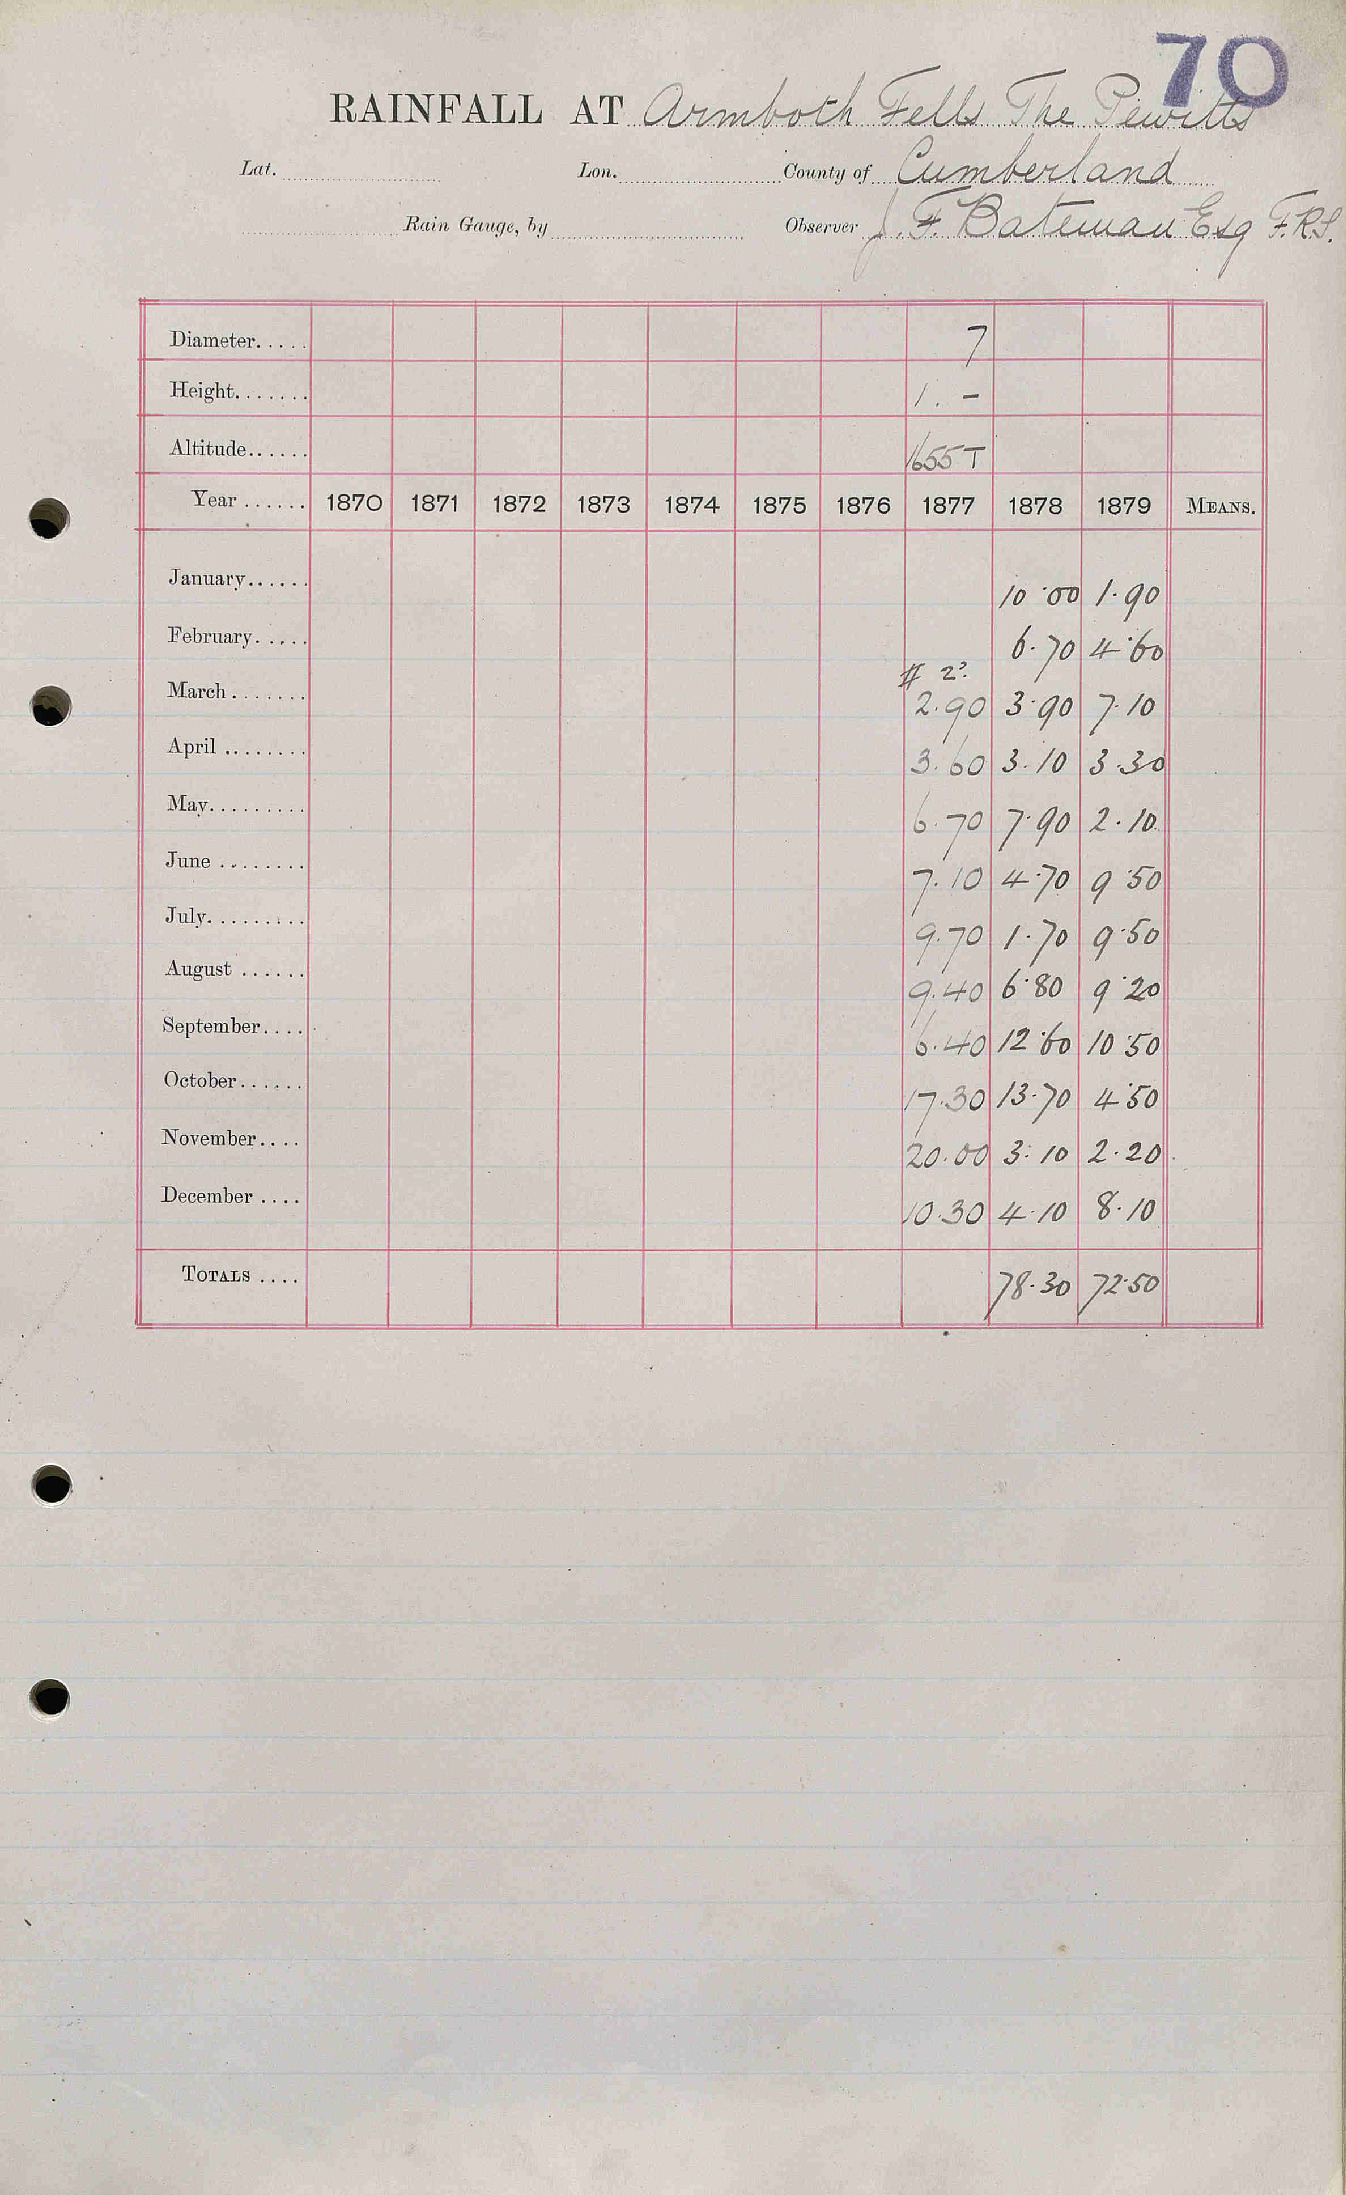 70
RAINFALL AT Armboth Fells The Pewitts
Lat. Lon. County of Cumberland
Rain Gauge, by Observer J. F. Bateman Esq F.R.S.
Diameter..... 7
Height....... 1. –
Altitude...... 1655 T
Year ...... 1870 1871 1872 1873 1874 1875 1876 1877 1878 1879 MEANS.
January...... 10.00 1.90
February..... 6.70 4.60
# 2?
March....... 2.90 3.90 7.10
April ........ 3.60 3.10 3.30
May......... 6.70 7.90 2.10
June ........ 7.10 4.70 9.50
July......... 9.70 1.70 9.50
August ...... 9.40 6.80 9.20
September.... 6.40 12.60 10.50
October...... 17.30 13.70 4.50
November.... 20.00 3.10 2.20
December .... 10.30 4.10 8.10
TOTALS .... 78.30 72.50